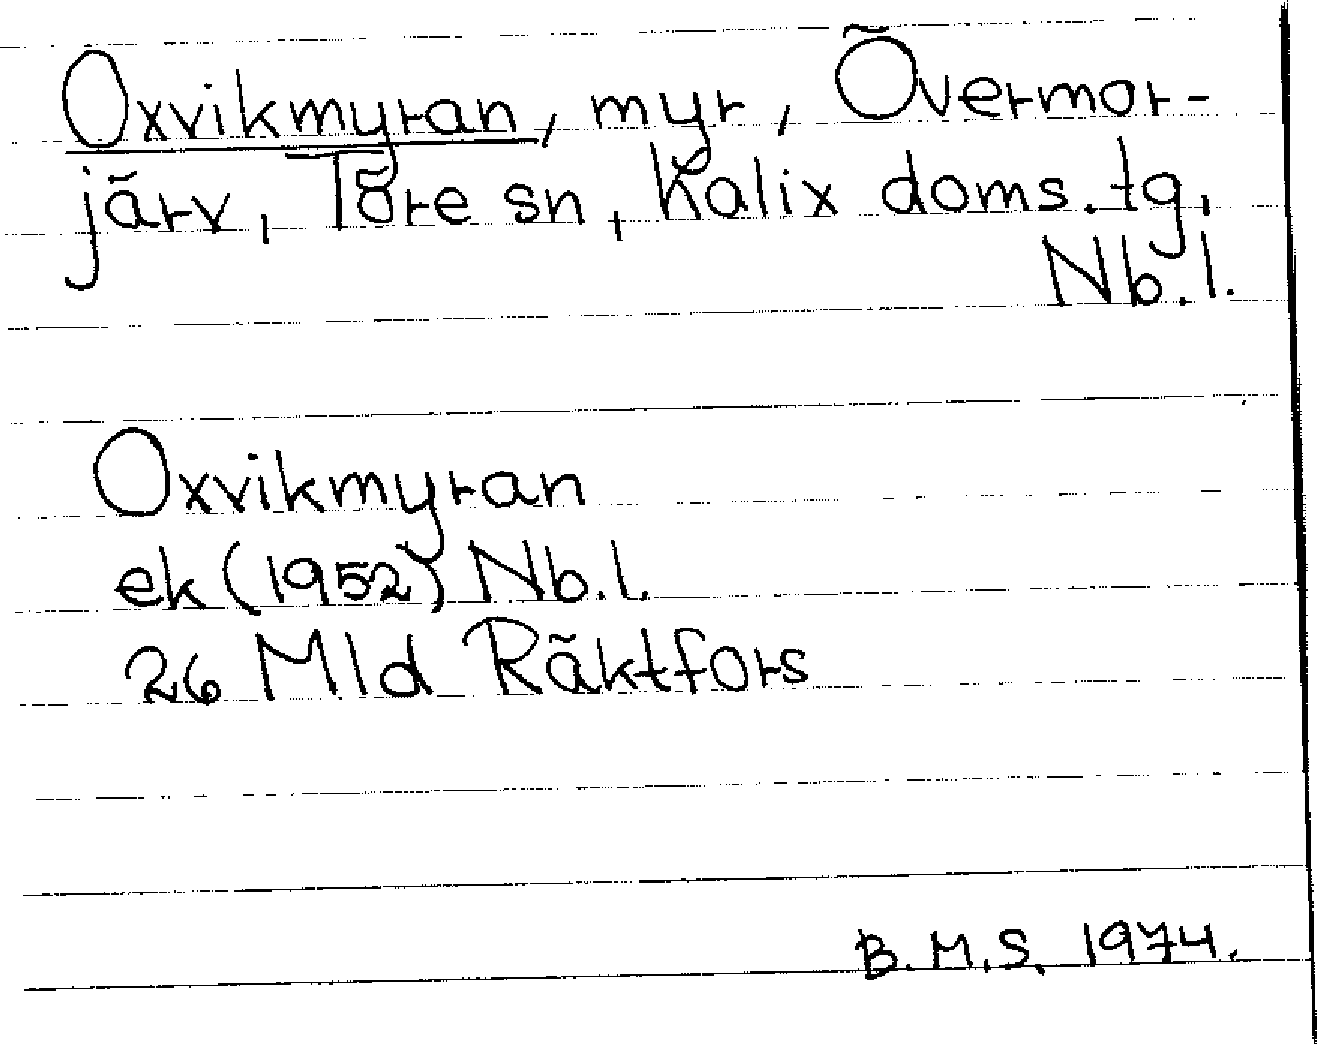 Oxvikmyran, myr, Övermor-
järv, Töre sn, Kalix doms.tg,
Nb.l.
Oxvikmyran
ek (1952) Nb.l.
26 Mld Räktfors
B.M.S. 1974.